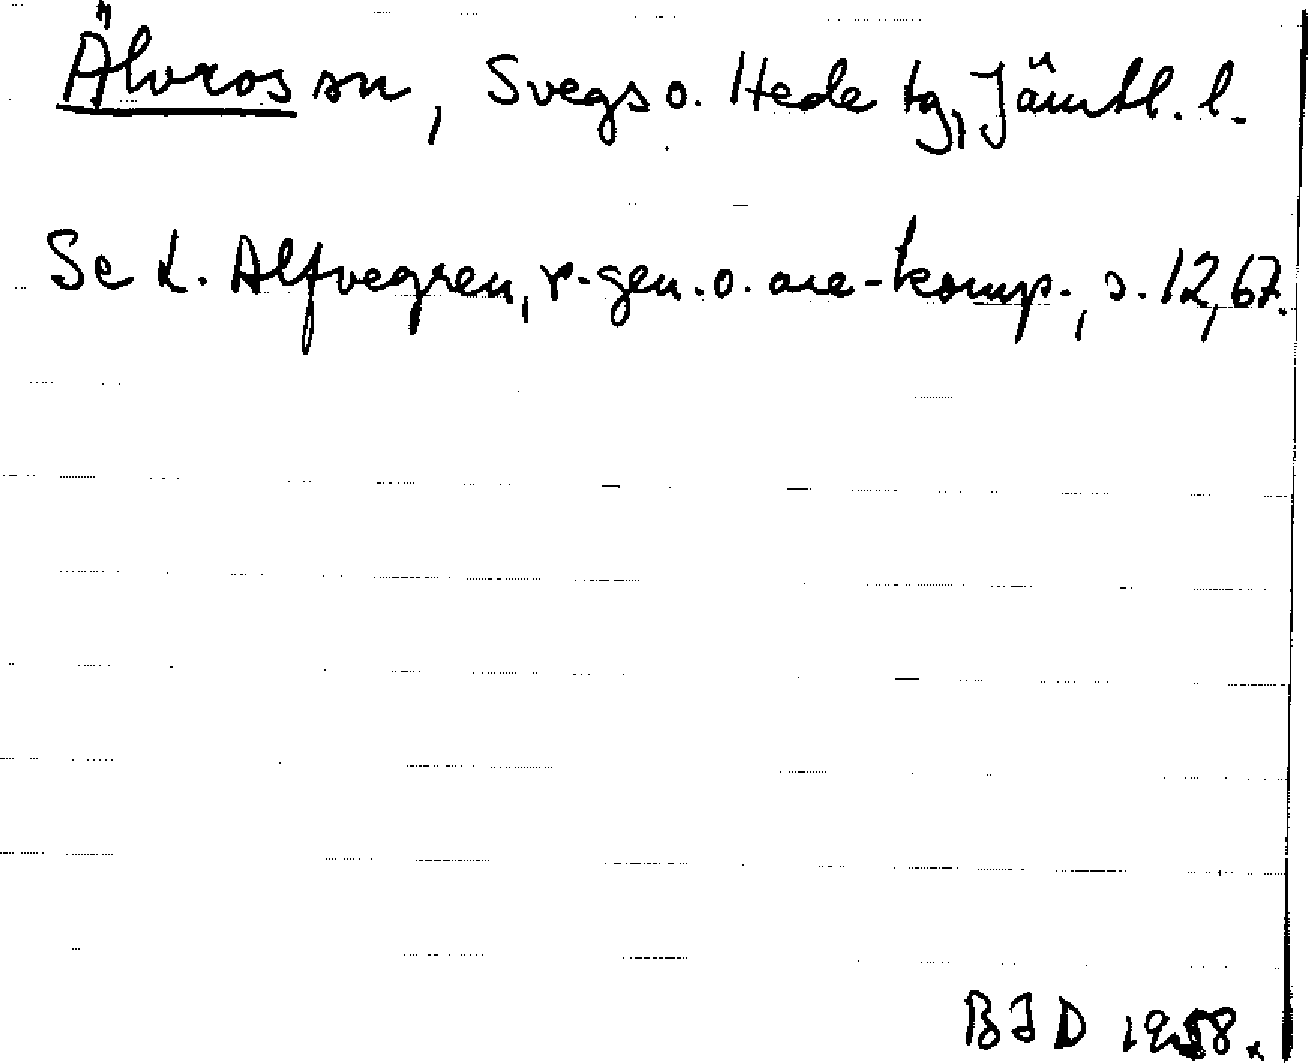 Älvros sn, Svegs o. Hede tg, Jämtl. l.
Se L. Alfvegren, r-gen. o. are-komp., s. 12, 67.
B J D 1958.